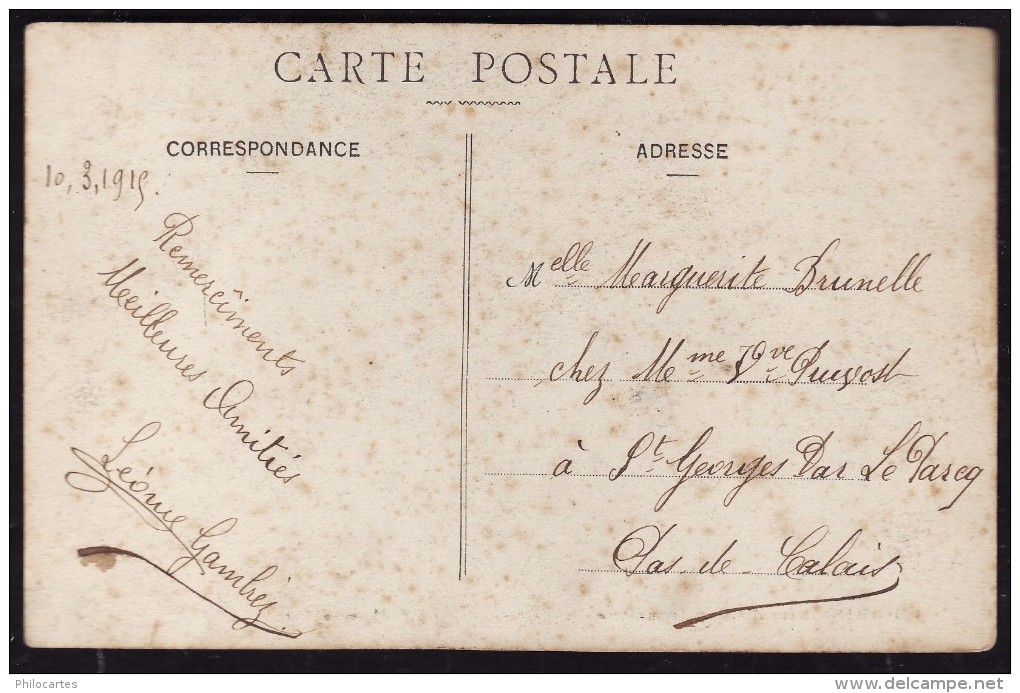 CARTE POSTALE
CORRESPONDANCE
10, 3, 1915.
Remerciments
Meilleures Amitiés
Léonie Gambez
ADRESSE
Melle Marguerite Brunelle
chez Mme Vve Pruvost
à St Georges Par Le Parcq
Pas-de-Calais
Philocartes
delcampe.net